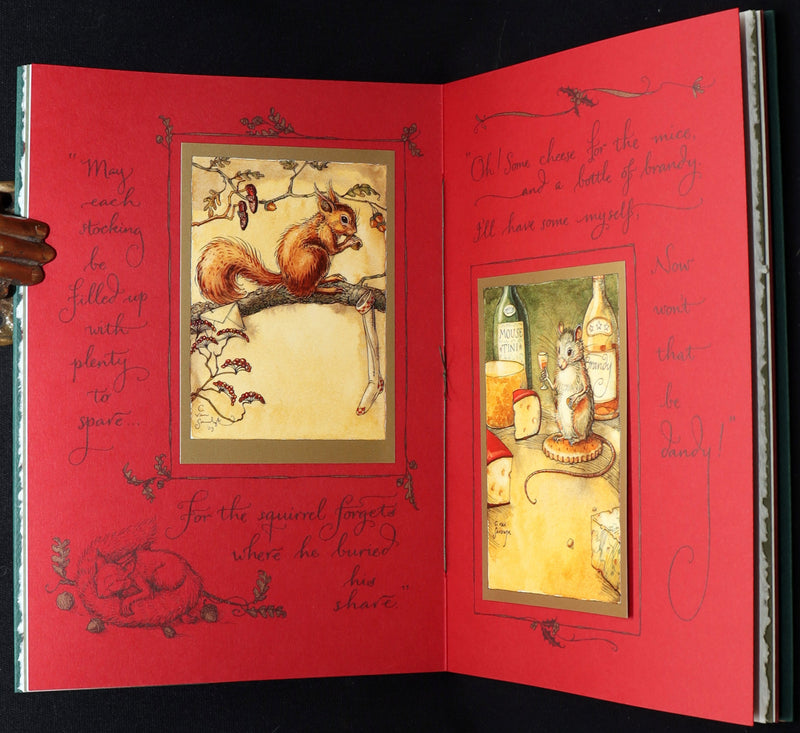 "May
each
stocking
be
filled up
with
plenty
to
spare...
For the squirrel forgets
where he buried
his
share."
"Oh! Some cheese for the mice,
and a bottle of brandy.
I'll have some myself,
Now
won't
that
be
dandy!"
MOUSE
TINI
Brandy
C
van